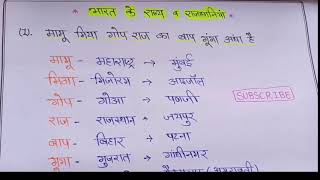 * भारत के राज्य व राजधानियां *
(1). मामू मिया गोप राज का बाप गूंगा अंधा है
मामू - महाराष्ट्र → मुंबई
मिया - मिजोरम → आइजॉल
गोप - गोआ → पणजी
राज - राजस्थान → जयपुर
बाप - बिहार → पटना
गूंगा - गुजरात → गांधीनगर
SUBSCRIBE